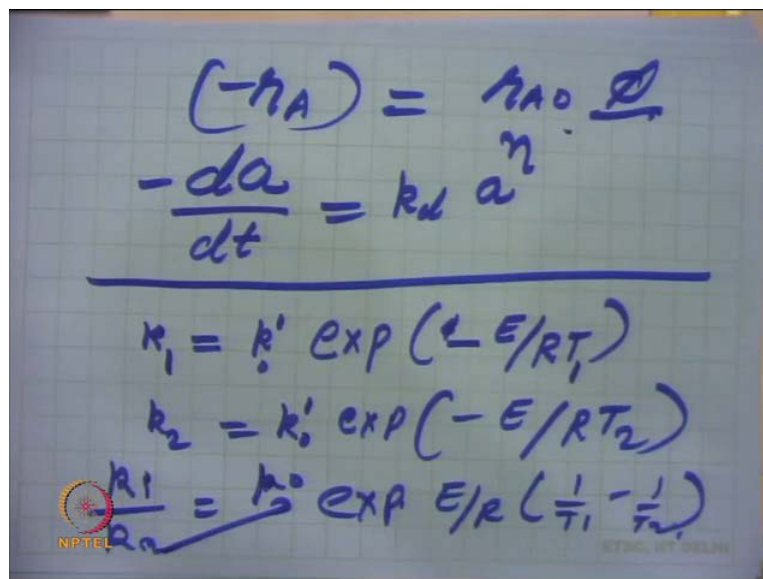 (-rA) = rA0 a
-da/dt = kd a^n
k1 = k0' exp(- E/RT1)
k2 = k0' exp(- E/RT2)
k1/k2 = k0 exp E/R (1/T1 - 1/T2)
NPTEL
ETSC, IIT DELHI